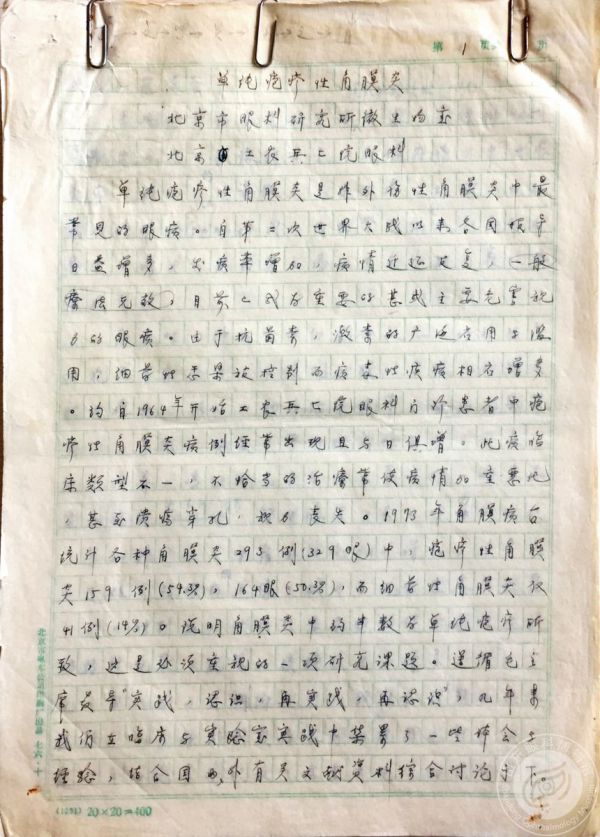 第 1 页
单纯疱疹性角膜炎
北京市眼科研究所微生物室
北京市工农兵医院眼科
单纯疱疹性角膜炎是非外伤性角膜炎中最
常见的眼病。自第二次世界大战以来各国报导
日益增多，发病率增加，病情迁延反复，(一般
疗法无效)，目前已成为重要的甚或主要危害视
力的眼病。由于抗菌素，激素的广泛应用与滥
用，细菌性恶果被控制而病毒性疾病相应增多
。约自1964年开始工农兵医院眼科门诊患者中疱
疹性角膜炎病例经常出现且与日俱增。此病临
床类型不一，不恰当的治疗常使病情加重恶化
，甚至溃疡穿孔，视力丧失。1973年角膜病台
统计各种角膜炎293例(329眼)中，疱疹性角膜
炎159例(54.3%)，164眼(50.3%)，而细菌性角膜炎仅
41例(14%)。说明角膜炎中约半数为单纯疱疹所
致，这是必须重视的一项研究课题。遵循毛主
席教导"实践，认识，再实践，再认识"，九年来
我们在临床与实验室实践中积累了一些体会与
经验，结合国内外有关文献资料综合讨论于下。
(1251) 20×20=400